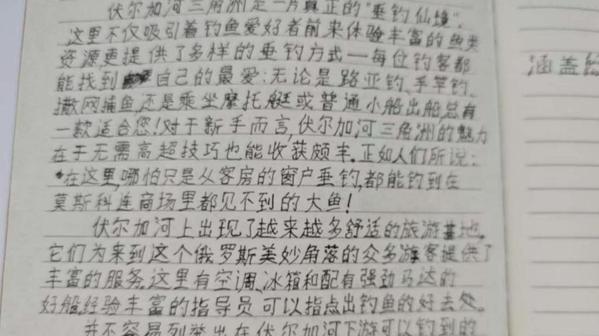 伏尔加河三角洲是一片真正的"垂钓仙境".
这里不仅吸引着钓鱼爱好者前来体验丰富的鱼类
资源更提供了多样的垂钓方式—每位钓客都
能找到自己的最爱:无论是路亚钓、手竿钓、
撒网捕鱼,还是乘坐摩托艇或普通小船出船,总有
一款适合您!对于新手而言,伏尔加河三角洲的魅力
在于无需高超技巧也能收获颇丰.正如人们所说:
"在这里,哪怕只是从客房的窗户垂钓,都能钓到在
莫斯科连商场里都见不到的大鱼!
伏尔加河上出现了越来越多舒适的旅游基地.
它们为来到这个俄罗斯美妙角落的众多游客提供了
丰富的服务.这里有空调、冰箱和配有强劲马达的
好船,经验丰富的指导员可以指点出钓鱼的好去处.
并不容易列举出在伏尔加河下游可以钓到的
涵盖